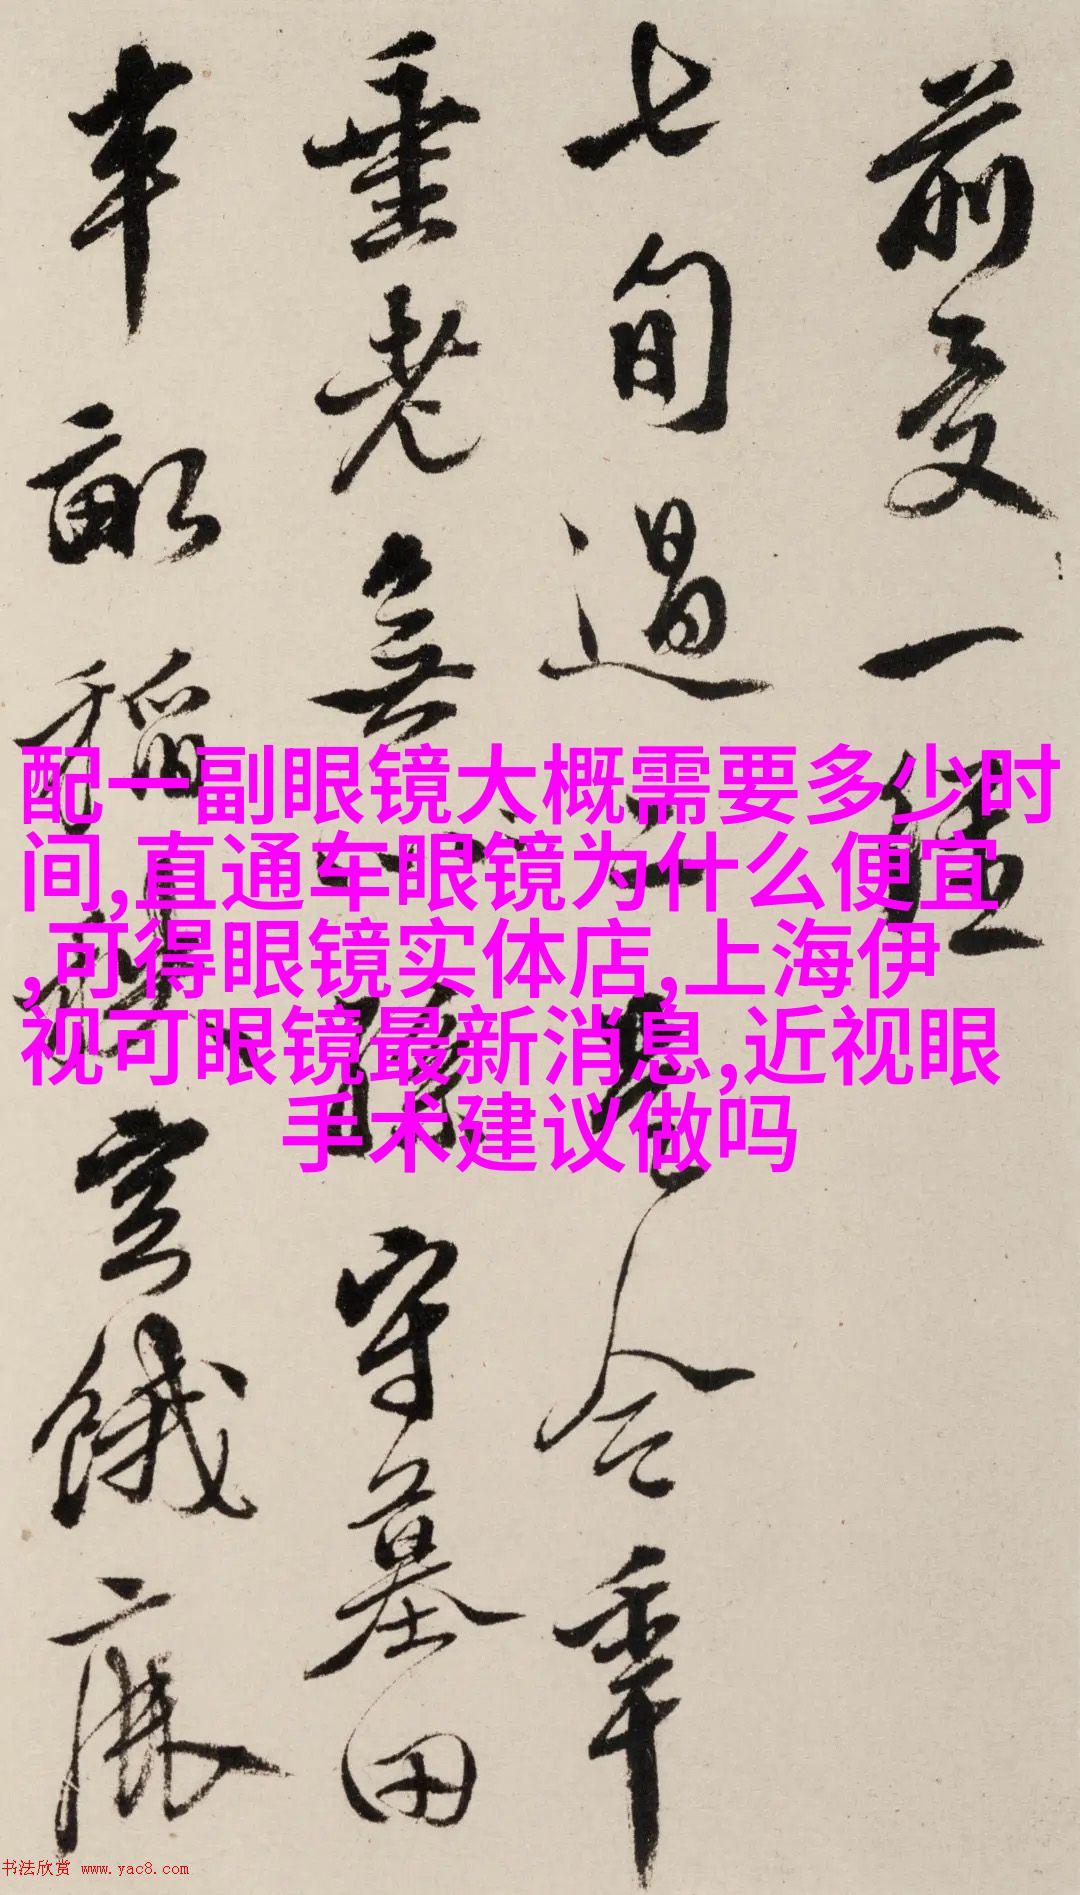 前受一廛
七旬过二 今年
垂老無 守墓田
半亩稻 空饿
配一副眼镜大概需要多少时
间,直通车眼镜为什么便宜
,可得眼镜实体店,上海伊
视可眼镜最新消息,近视眼
手术建议做吗
书法欣赏 www.yac8.com